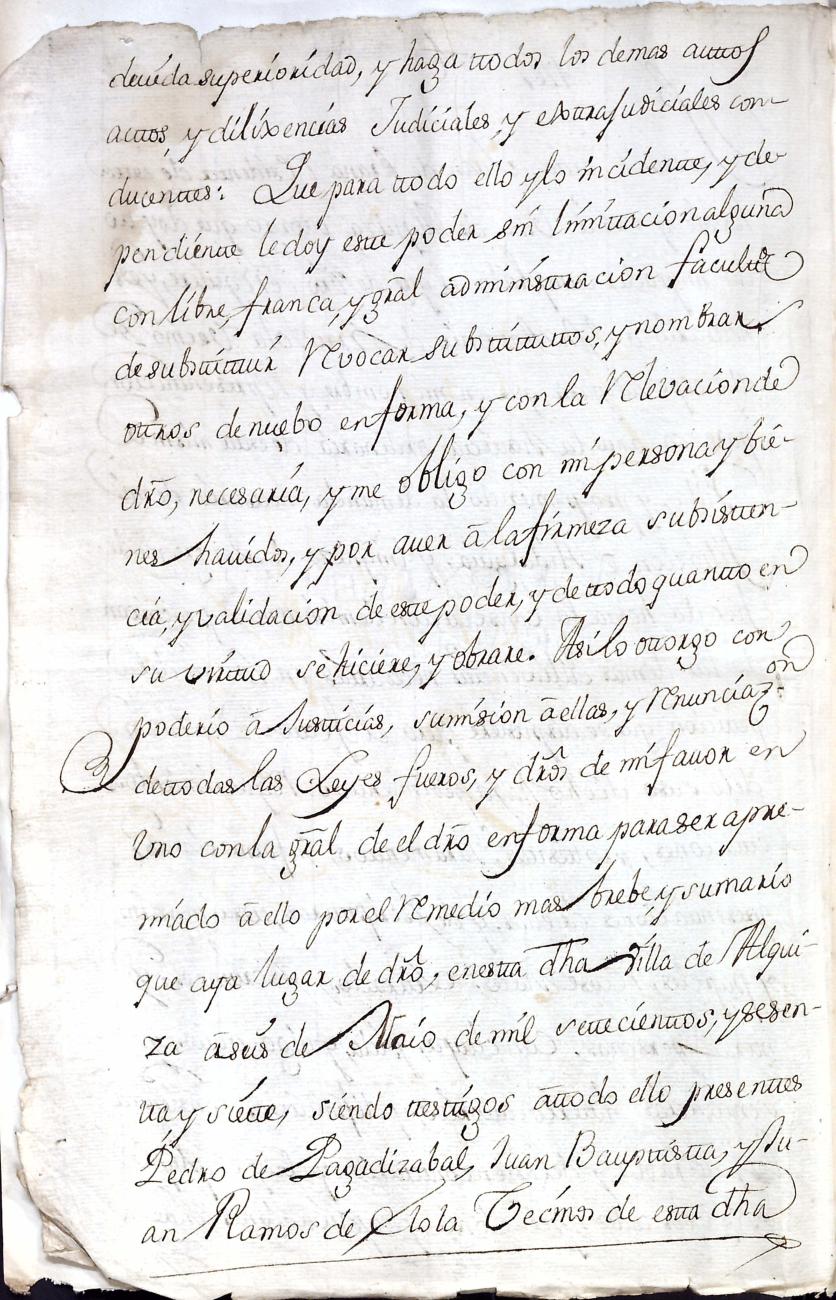 devida superioridad, y haga ttodos los demas auttos
auttos, y dilixencias Judiciales, y extrajudiciales con-
ducenttes: Que para ttodo ello y lo incidentte, y de-
pendientte le doy estte poder sin limittacion alguna
con libre, franca, y gral administtracion facultd
de substtittuir Revocar substtittuttos, y nombrar
ottros de nuebo en forma, y con la Relevacion de
dro, necesaria, y me obligo con mi persona y bie-
nes havidos, y por aver â la firmeza subsistten-
cia, y validacion de estte poder, y de ttodo quantto en
su virttud se hiciere, y obrare. Asi lo ottorgo con
poderio â Justicias, sumision â ellas, y Renunciazon
de ttodas las Leyes fueros, y dros de mi favor en
Uno con la gral de el dro en forma para ser apre-
miado â ello por el Remedio mas brebe, y sumario
que aya lugar de dro, en estta dha Villa de Alqui-
za â seis de Maio de mil settecienttos, y sesen-
tta y siette, siendo ttesttigos â ttodo ello presenttes
Pedro de Pagadizabal, Juan Bauptistta, y Ju-
an Ramos de Elola Vecinos de estta dha